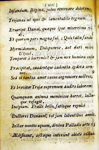 Infandum, Regina, jubes renovare dolorem,
Trojanas ut opes & lamentabile regnum
Eruerint Danai, quæque ipse miserrima vidi,
Et quorum pars magna fui. Quis talia fando
Myrmidonum, Dolopumve, aut duri miles
Temperet à lacrymis? & jam nox humida cœlo
Præcipitat, suadentque cadentia sidera somnos.
Sed si tantus amor casus cognoscere nostros,
Et breviter Trojæ supremum audire laborem,
Quanquam animus meminisse horret, luctuque
Incipiam. Fracti bello, fatisque repulsi
Ductores Danaum, tot jam labentibus annis,
Instar montis equum, divina Palladis arte
Ædificant, sectaque intexunt abiete costas.